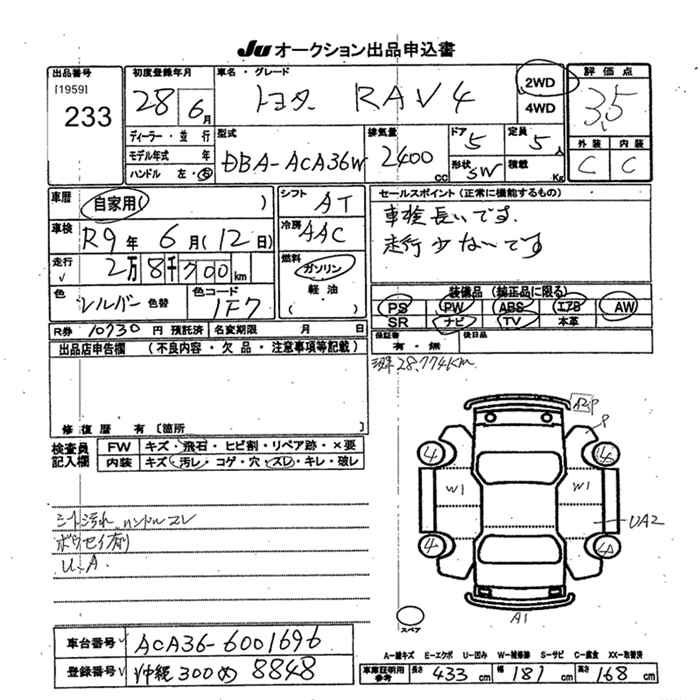 JU オークション出品申込書
出品番号
[1959]
233
初度登録年月
28 6月
車名・グレード
トヨタ RAV4
2WD
4WD
評価点
3.5
外装 内装
C C
ディーラー・並行
モデル年式 年
ハンドル 左・右
型式
DBA-ACA36W
排気量
2400 CC
ドア 5
定員 5人
形状 SW
積載 Kg
車歴 自家用( )
車検 R9年 6月(12日)
走行 2万8千700km
色 シルバー 色替
色コード 1F7
シフト AT
冷房 AAC
燃料
ガソリン
軽油
( )
セールスポイント(正常に機能するもの)
車検長いです。
走行少ないです
装備品(純正品に限る)
PS PW ABS エアB AW
SR ナビ TV 本革
R券 10730円 預託済 名変期限 月 日
保証書 有・無
後日品
出品店申告欄 (不良内容・欠品・注意事項等記載)
28,774km
修復歴 有 〔箇所 〕
検査員記入欄
FW キズ・飛石・ヒビ割・リペア跡・×要
内装 キズ・汚レ・コゲ・穴・スレ・キレ・破レ
シート汚れ ハンドルスレ
ボウセイ剤
U.A
A2P
P
4
4
W1
W1
UA2
4
A1
スペア
車台番号 ACA36-6001696
登録番号 沖縄 300 め 8848
A-線キズ E-エクボ U-凹み W-補修跡 S-サビ C-腐食 XX-取替済
車庫証明用参考 長さ 433cm 幅 181cm 高さ 168cm